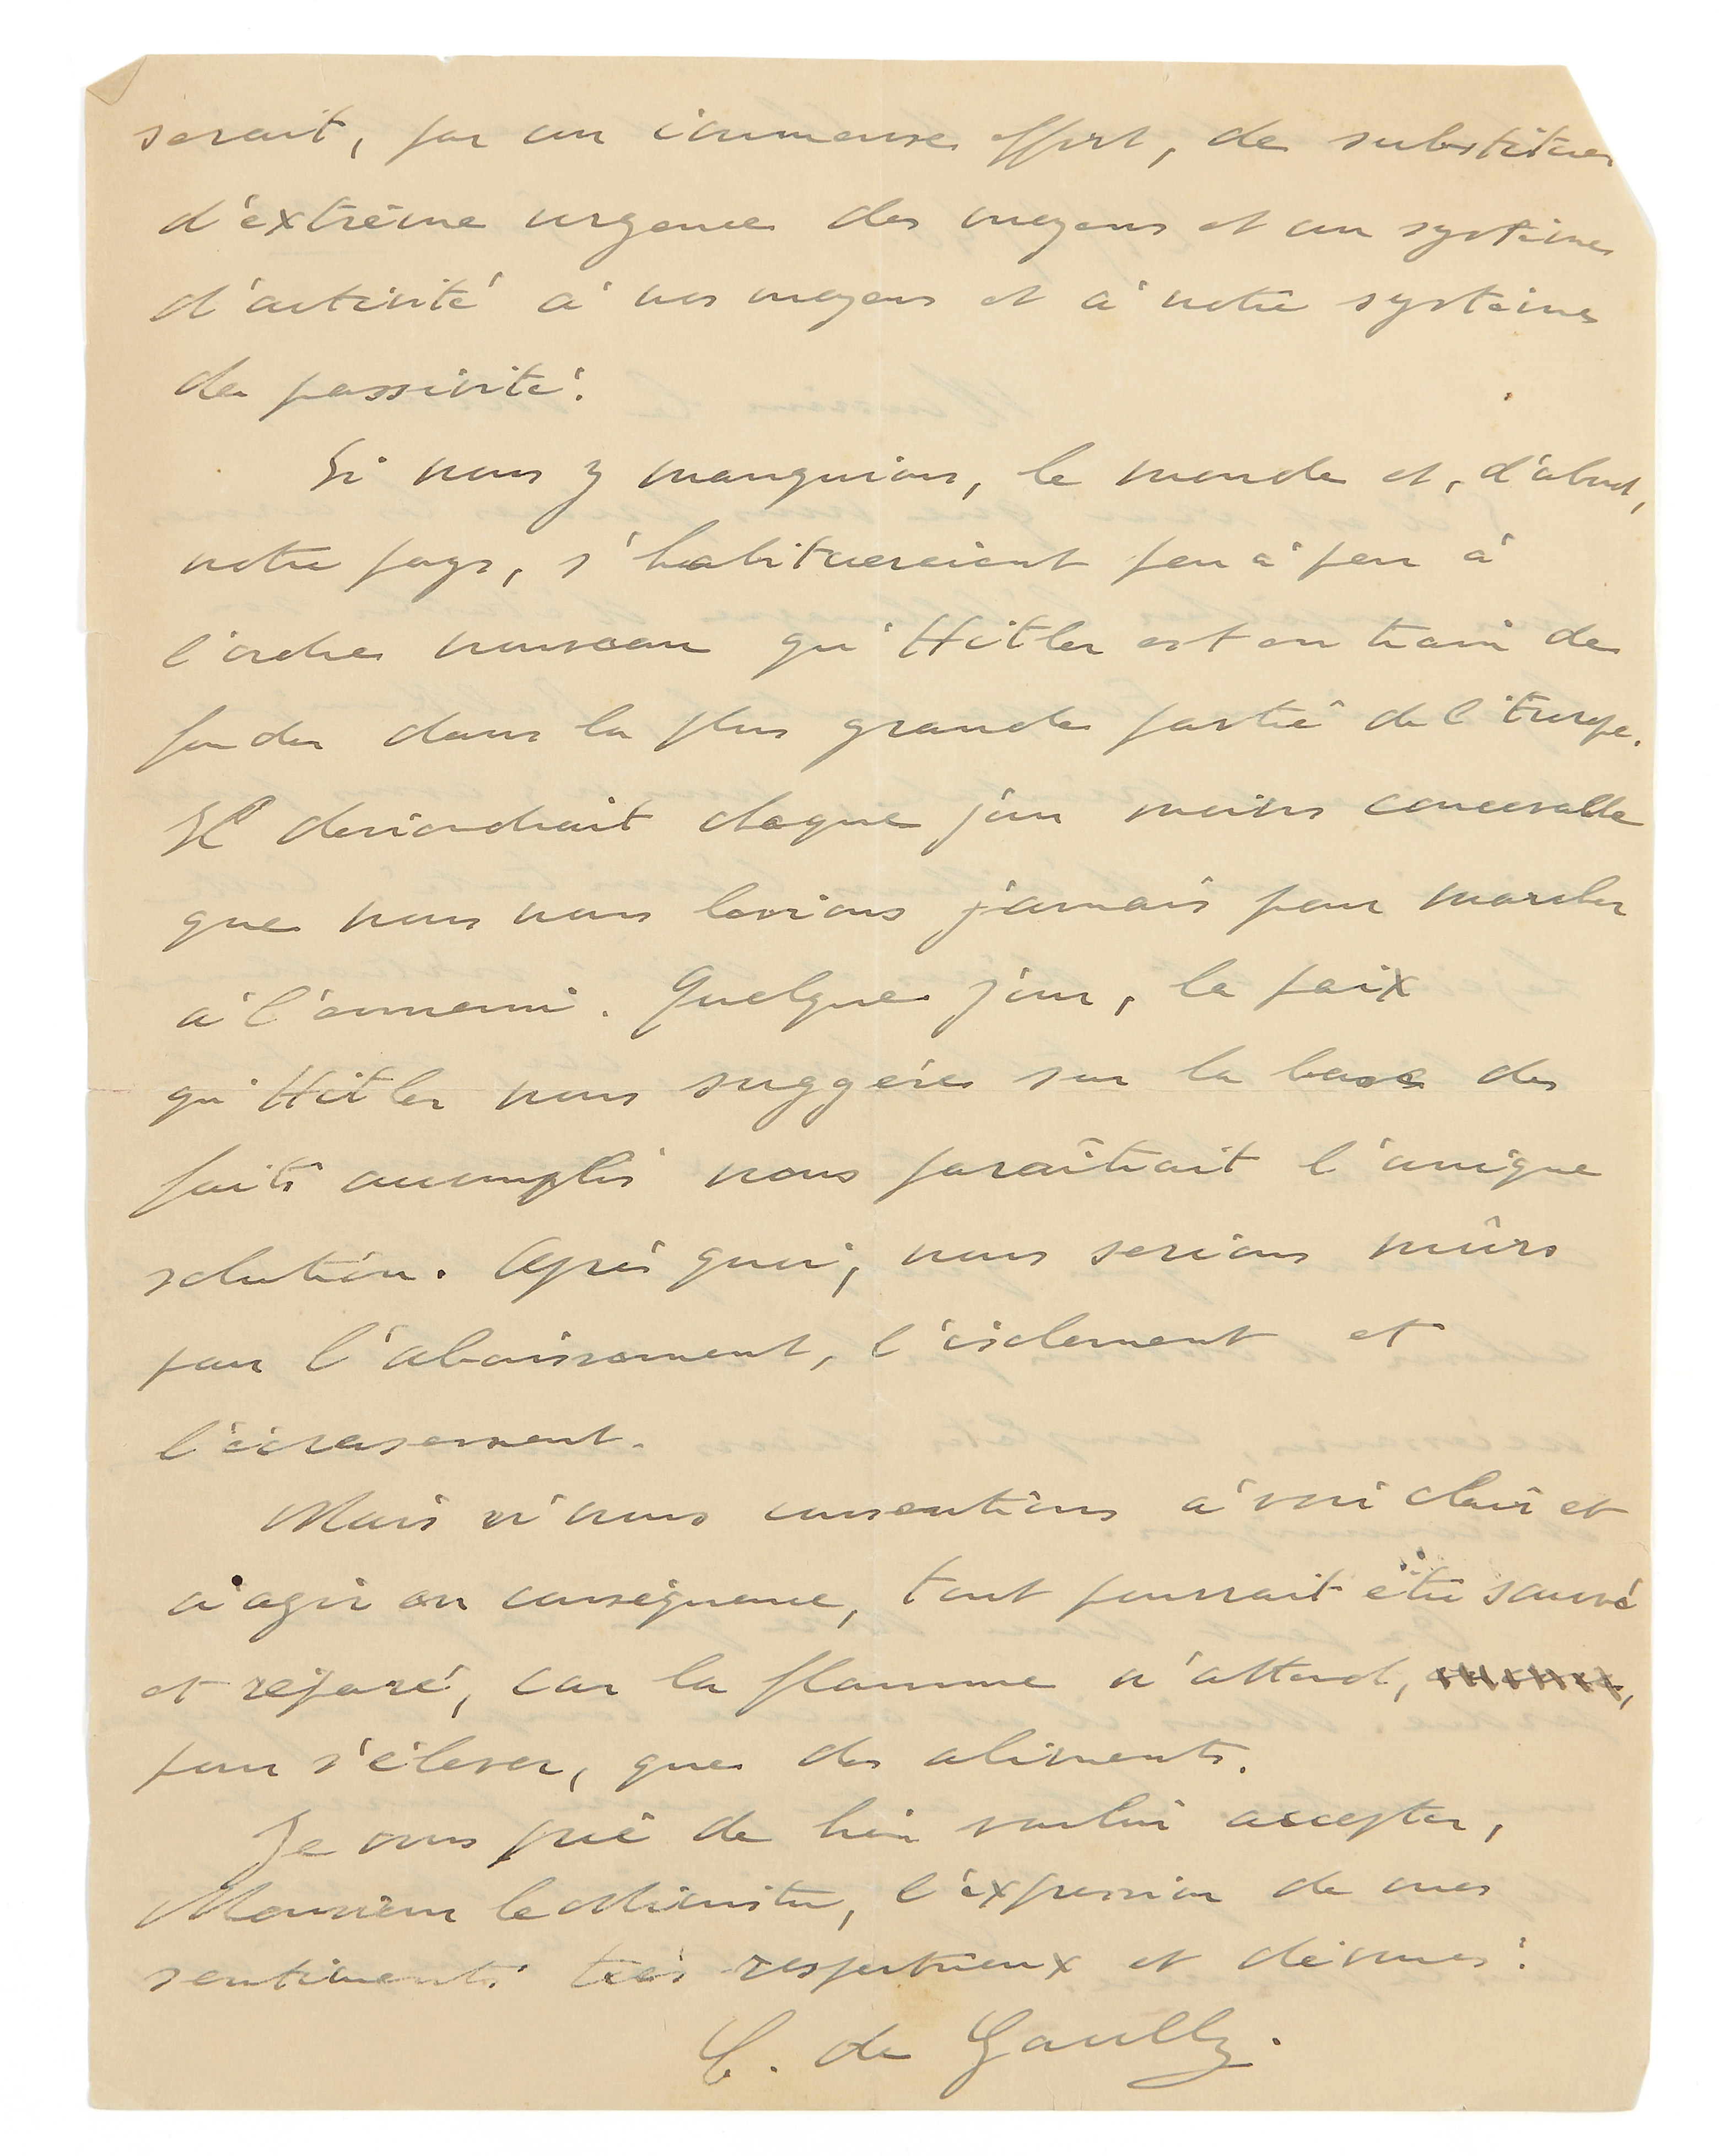 serait, par un immense effort, de substituer
d'extrême urgence des moyens et un système
d'activité à nos moyens et à notre système
de passivité.
Si nous y manquions, le monde et, d'abord,
notre pays, s'habitueraient peu à peu à
l'ordre nouveau qu'Hitler est en train de
fonder dans la plus grande partie de l'Europe.
Il deviendrait chaque jour moins concevable
que nous nous levions jamais pour marcher
à l'ennemi. Quelque jour, la paix
qu'Hitler nous suggère sur la base des
faits accomplis nous paraîtrait l'unique
solution. Après quoi, nous serions mûrs
pour l'abaissement, l'isolement et
l'écrasement.
Mais si nous consentions à voir clair et
à agir en conséquence, tout pourrait être sauvé
et réparé, car la flamme n'attend,
pour s'élever, que des aliments.
Je vous prie de bien vouloir accepter,
Monsieur le Ministre, l'expression de mes
sentiments très respectueux et dévoués.
C. de Gaulle.